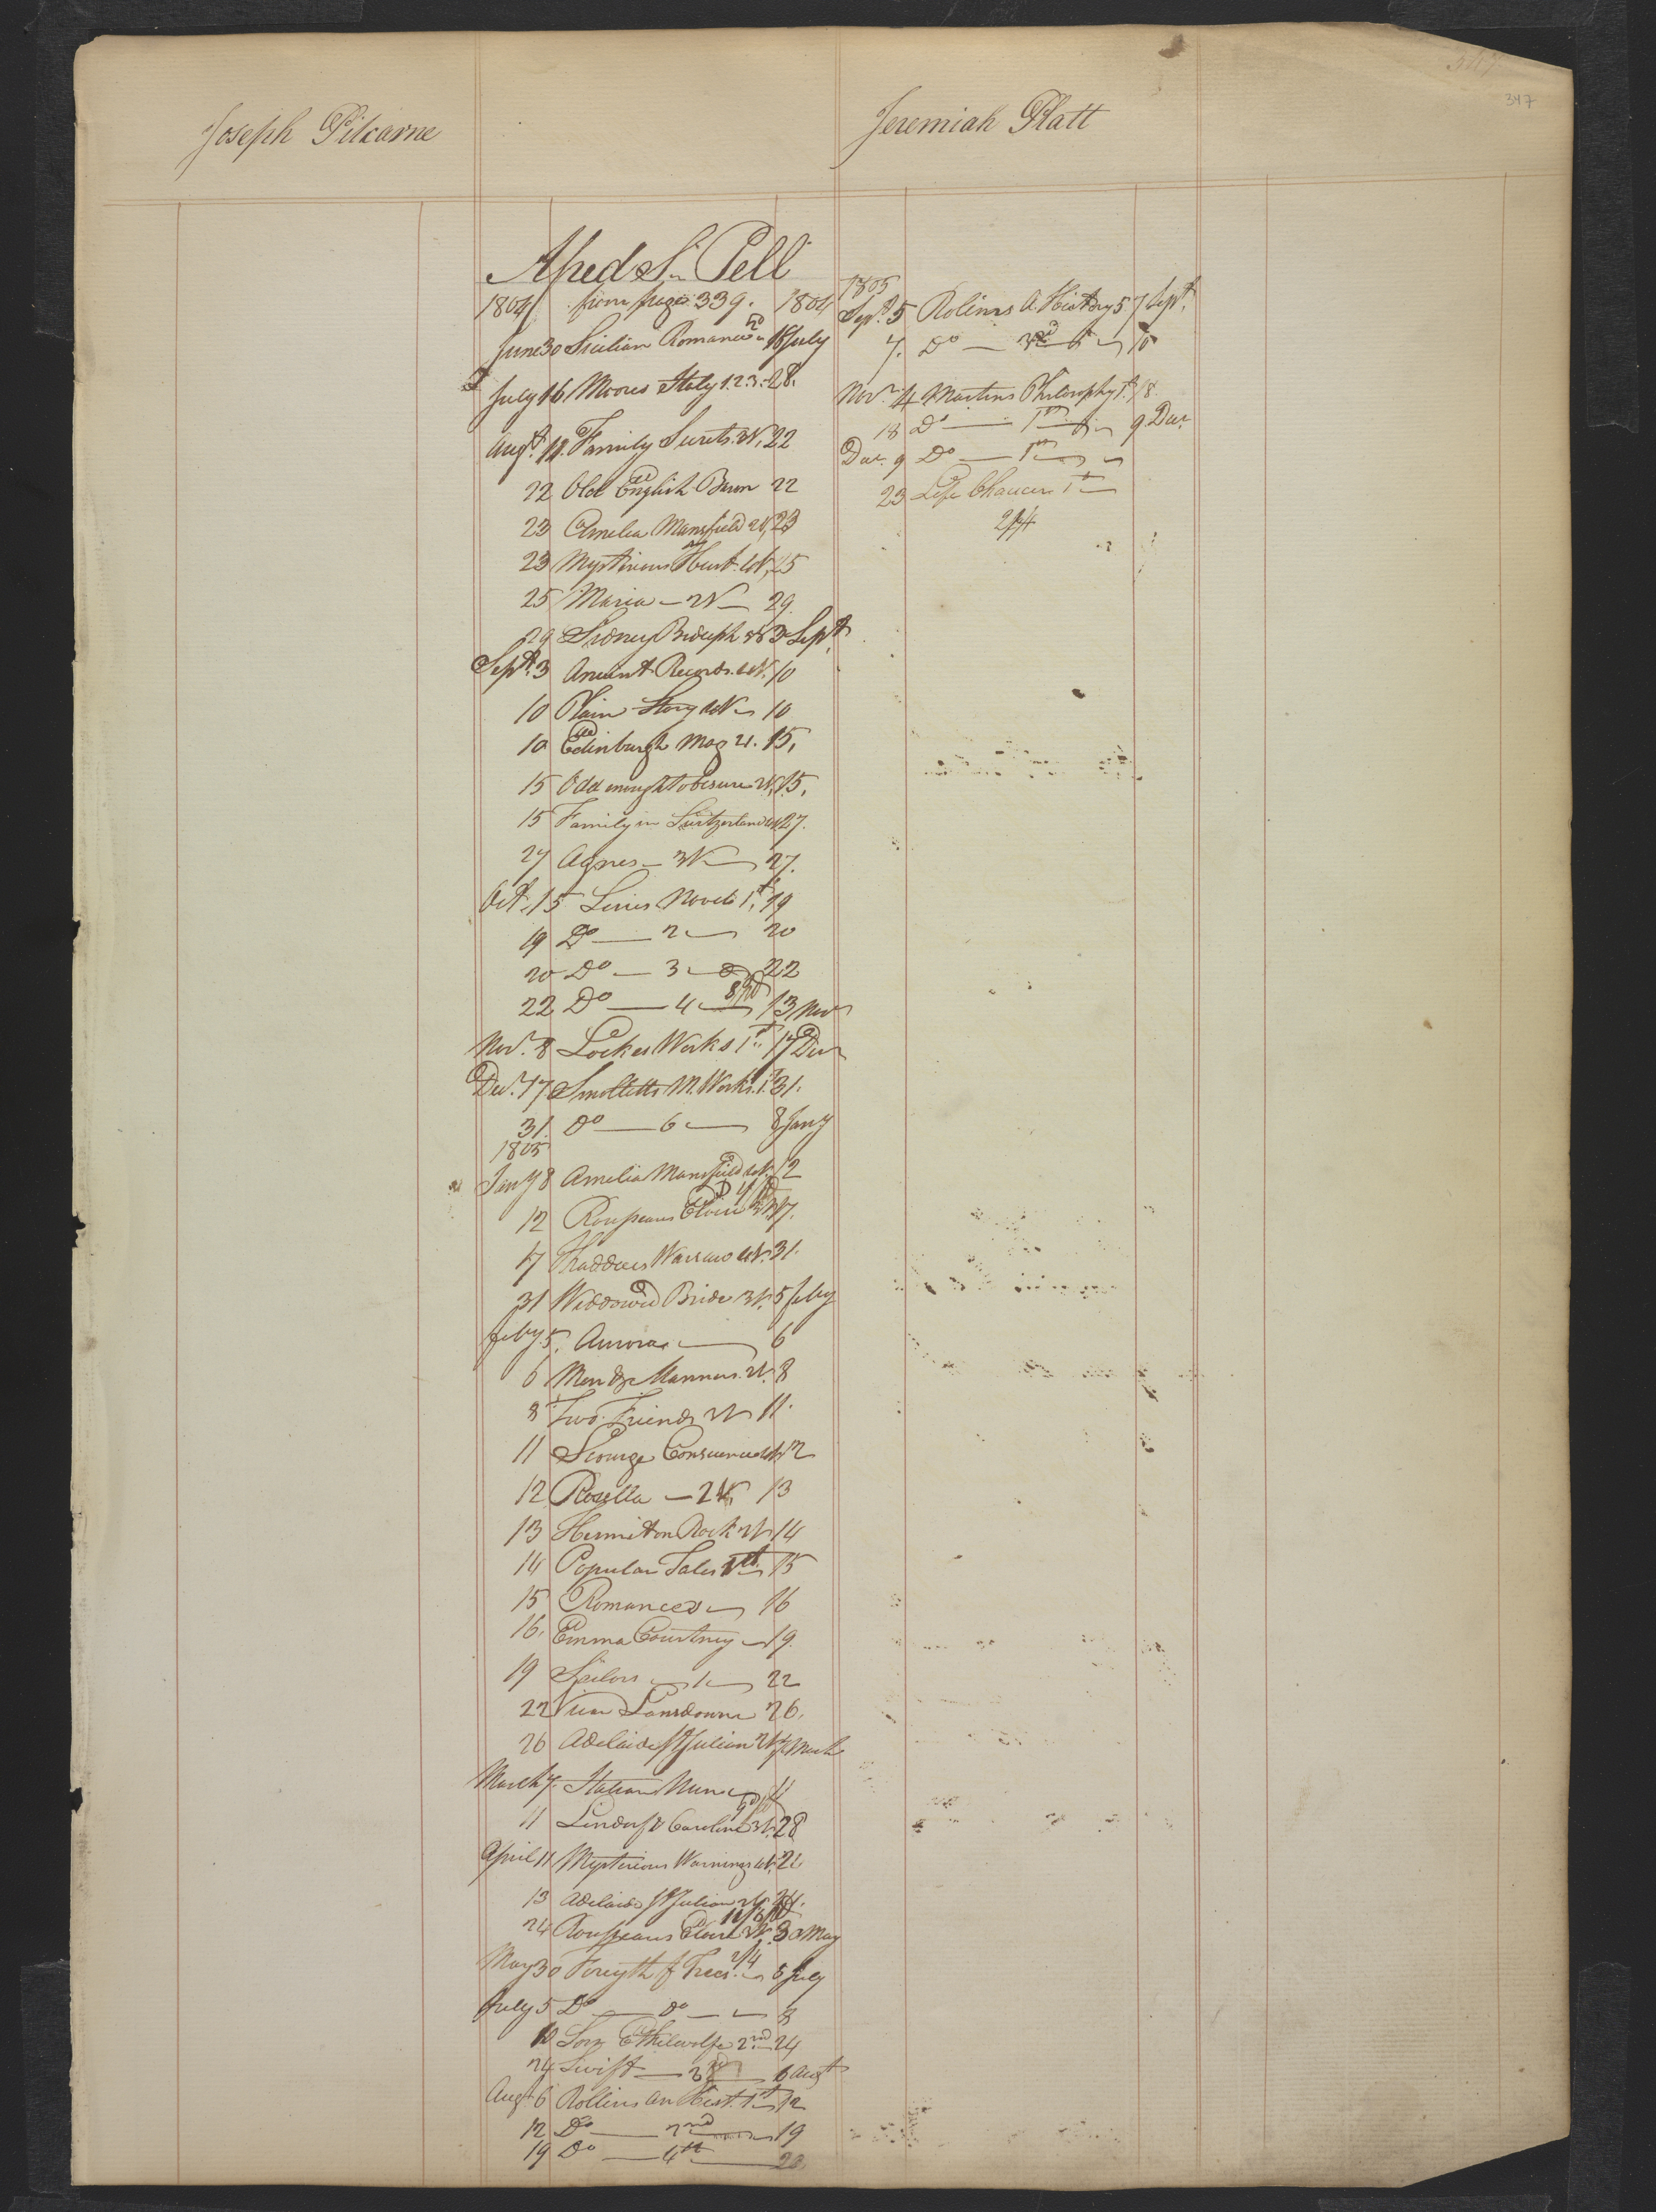 347
Joseph Pitcarne
Jeremiah Platt
Alfred S. Pell
1804 from page 339. 1804
June 30 Sicilian Romance 18 July
July 16 Moores Italy 1.2.3. 28.
Augt. 11. Family Secrets. 22
22 Old English Baron 22
23 Amelia Mansfield 23
23 Mysterious Husb. 4V. 25
25 Maria — 2V — 29.
29 Sidney Biduph 3 Sept.
Sept. 3 Ancient Records. 4V. 10
10 Plain Story 10
10 Edinburgh Mag 21. 15,
15 Odd enough to be sure 2V. 15,
15 Family in Switzerland 27.
27 Agnes — 3V — 27.
Oct. 15 Series Novels 1st 19
19 Do — 2 — 20
20 Do — 3 — 22
22 Do — 4 — 13 Nov
Nov. 8 Lockes Works 1st 17 Decr
Decr. 17 Smolletts M. Works. 1. 31.
31. Do — 6 — 8 Jany
1805
Jany 8 Amelia Mansfield 12
12 Rousseaus Eloise 17.
17 Thaddeus Warsaw 4V. 31.
31 Widdowed Bride 3V. 5 Feby
Feby. 5, Aurora — 6
6 Men & Manners. 8
8 Two Friends 2V 11.
11 Scourge Conscience 12
12 Rosella — 2V. 13
13 Hermit on Rock 2V 14
14 Popular Tales 15
15 Romances — 16
16. Emma Courtney — 19.
19 Sailors — 1 — 22
22 View Lansdowne 26.
26 Adelaide St Julian 2V 7 March
March 7. Italian Nun — 11
11 Lindorf & Caroline 3V. 28
April 11 Mysterious Warnings
13 Adelaide St Julian 2V. 24.
24 Rousseaus Eloise 30 May
May 30 Forsyth f Trees. 2/4 5 July
July 5 Do — do — 8
10 Ethelwolfe 2nd 24
24 Swift — 6 Augt
Augt 6 Rollins An Hist. 1st 12
12 Do — 2nd — 19
19 Do — 4th —
1805
Sept. 5 Rolins A. History 5 7 Sept.
7. Do — 6 — 10
Novr. 4 Martins Philosophy 1st. 18.
18 Do — 9 Decr.
Decr. 9 Do —
23 Life Chaucer 1st —
2/4